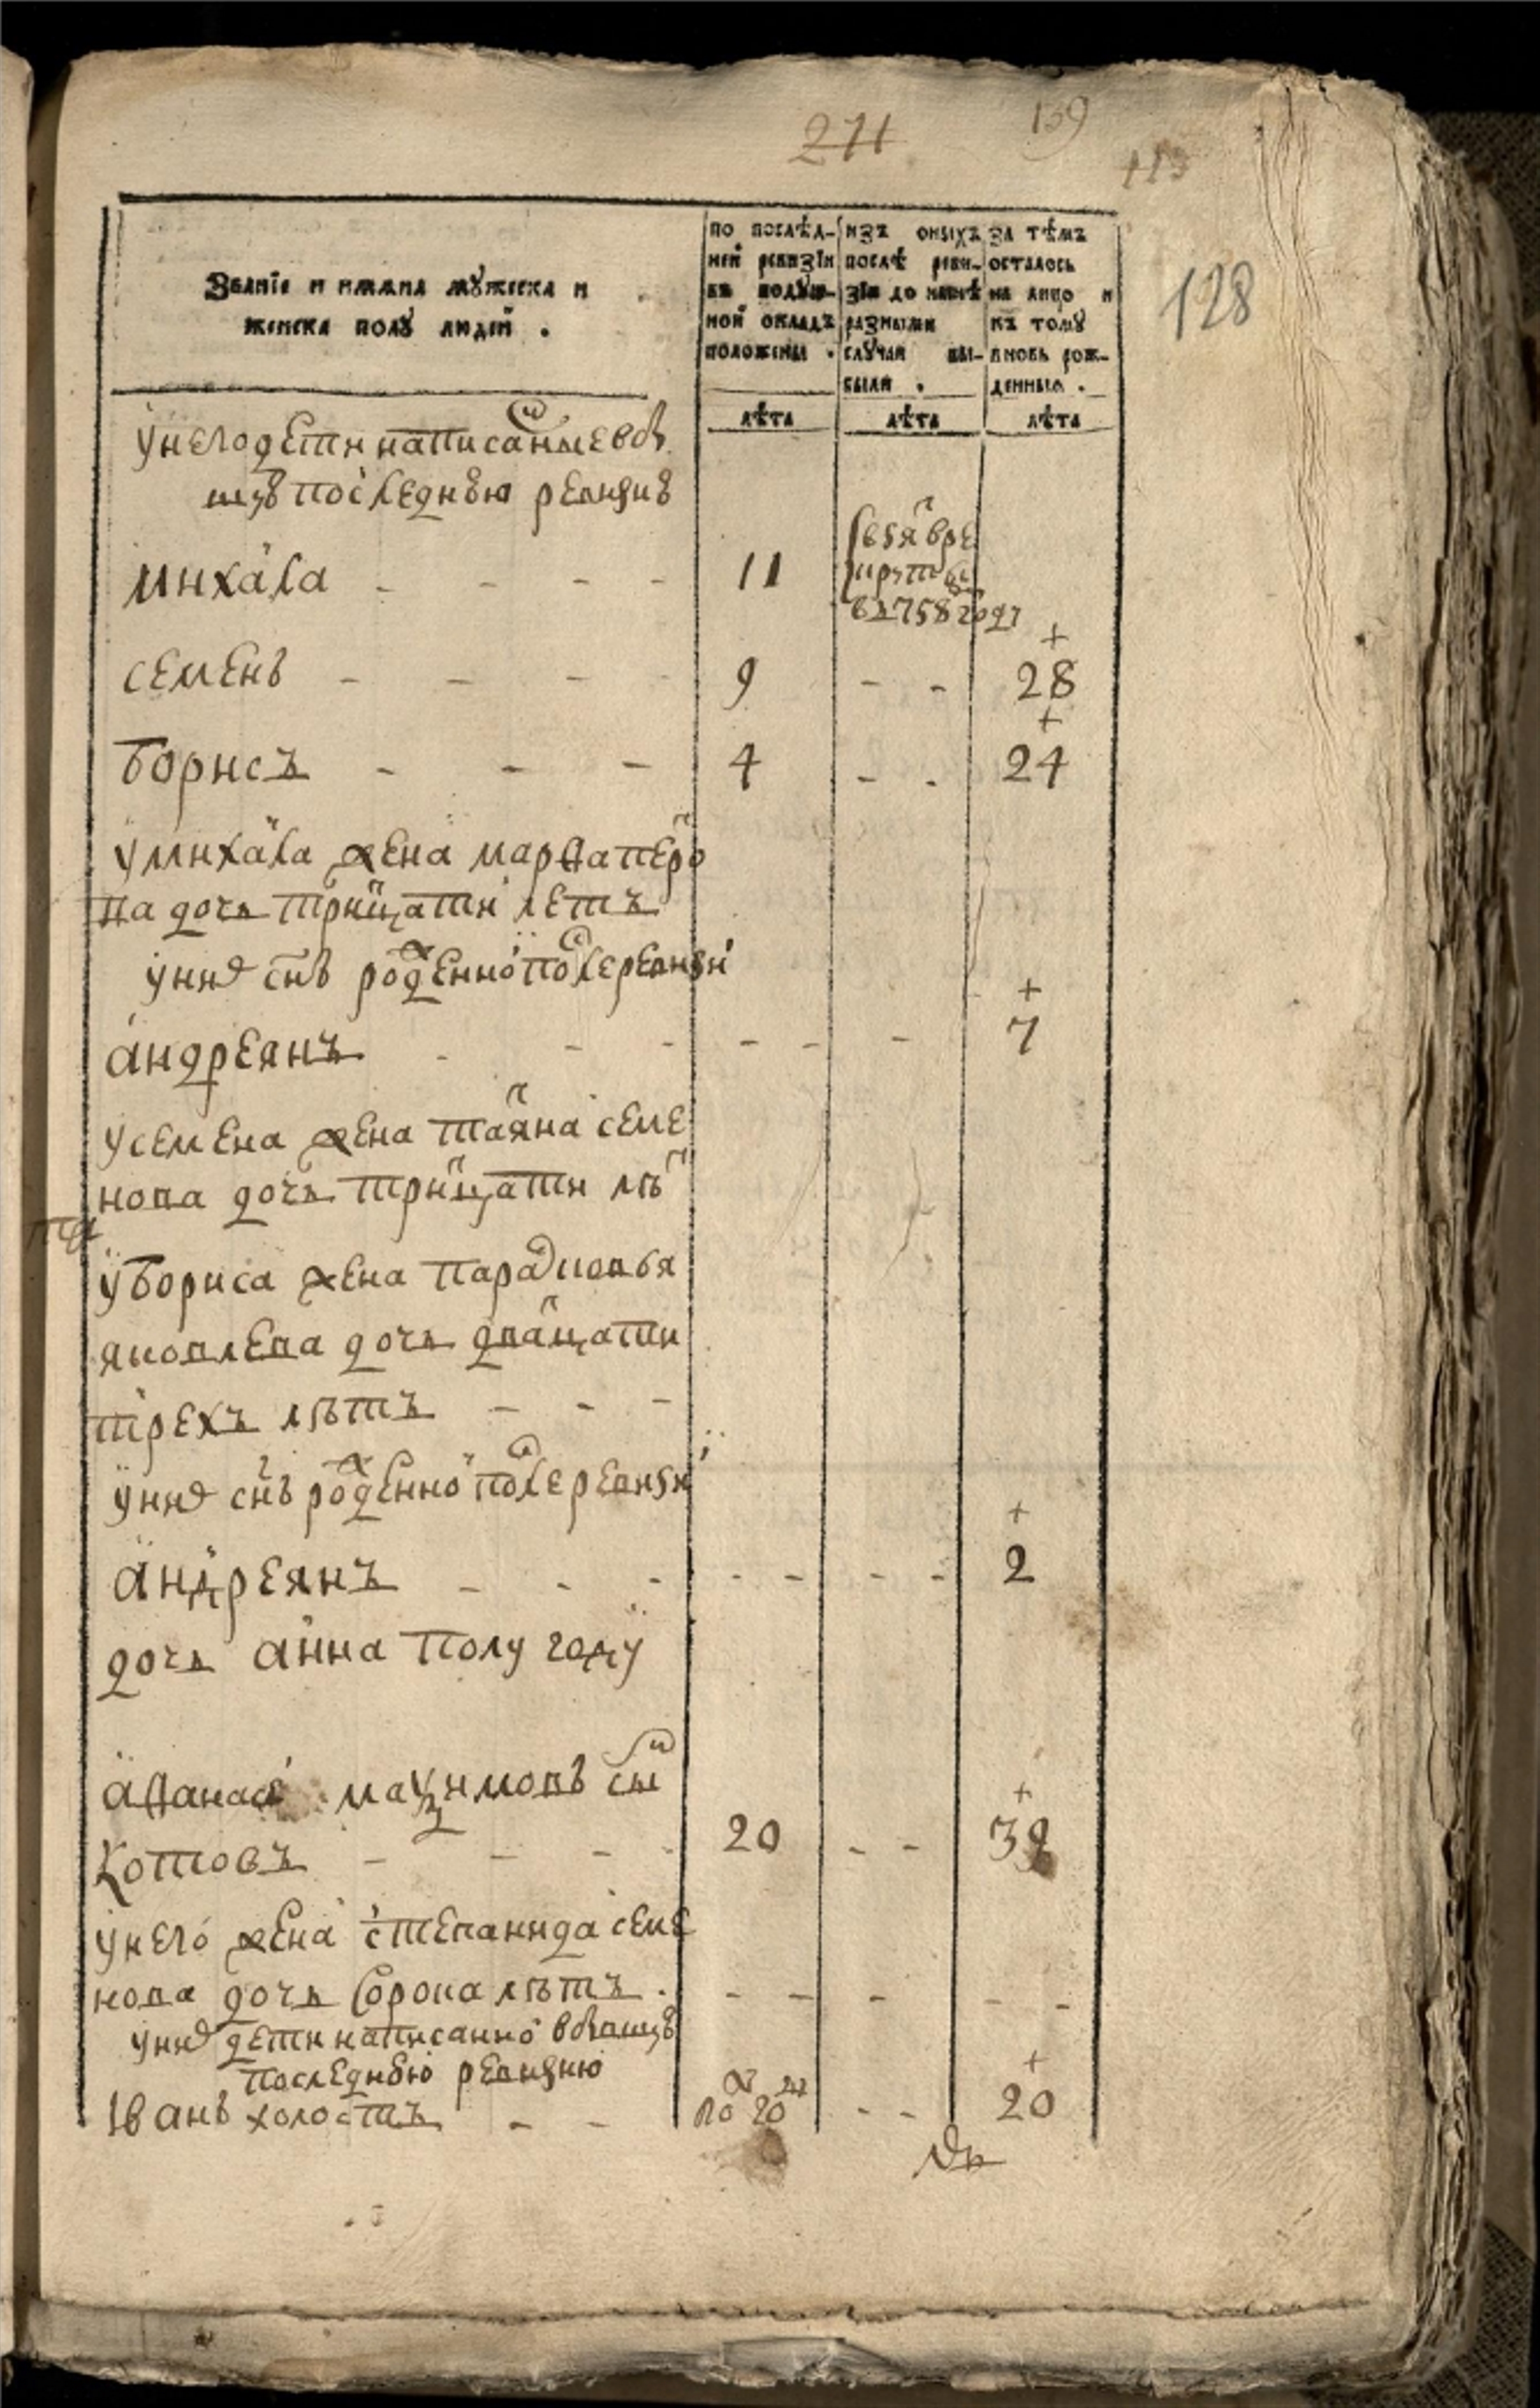 271 159
113
128
Званїе и имяна мужеска и
женска полу людей .
по послѣд-
ней ревизїи
въ подуш-
ной окладъ
положены .
изъ оныхъ
послѣ реви-
зїи до нынѣ
разными
случаи вы-
были .
за тѣмъ
осталось
на лицо и
къ тому
вновь рож-
денныя .
лѣта лѣта лѣта
у него дети написаныевоб
шуюпоследнюю ревизию
михаıла - - - - 11
взят в ре
круты
в 1758 году
+
семенъ - - - 9 - - 28
+
борисъ - - - 4 - - 24
у михаıла жена марфа петро
ва дочь тритцати летъ
у ней сынъ рожденной после ревизии
+
андреянъ - - - - - - 7
у семена жена татяна семе
нова дочь тритцати лѣт
у бориса жена парасковья
яковлева дочь дватцати
трехъ лѣтъ - - -
у ней снъ рожденной после ревизии
+
андреянъ - - - - - - - 2
дочь анна полу году
афанасей маѯимовъ сын
+
котовъ - - - 20 - - 38
у него жена степанида семе
нова дочь сорока лѣтъ . - - - - -
у ней дети написанной вобщую
последнюю ревизию
+
Iванъ холостъ - - - - 20